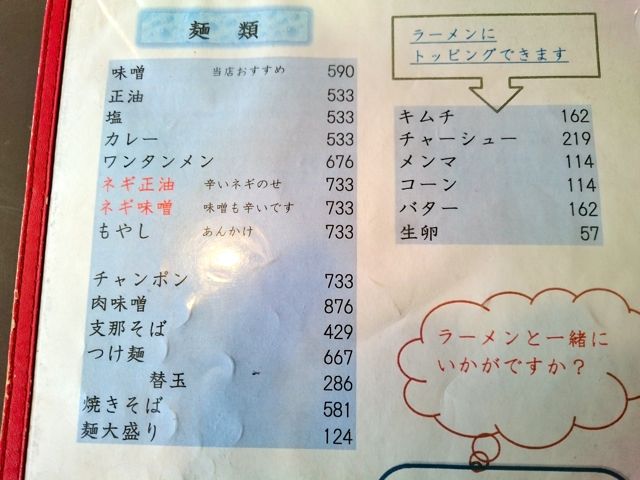 麺類
味噌 当店おすすめ 590
正油 533
塩 533
カレー 533
ワンタンメン 676
ネギ正油 辛いネギのせ 733
ネギ味噌 味噌も辛いです 733
もやし あんかけ 733
チャンポン 733
肉味噌 876
支那そば 429
つけ麺 667
替玉 286
焼きそば 581
麺大盛り 124
ラーメンに
トッピングできます
キムチ 162
チャーシュー 219
メンマ 114
コーン 114
バター 162
生卵 57
ラーメンと一緒に
いかがですか？